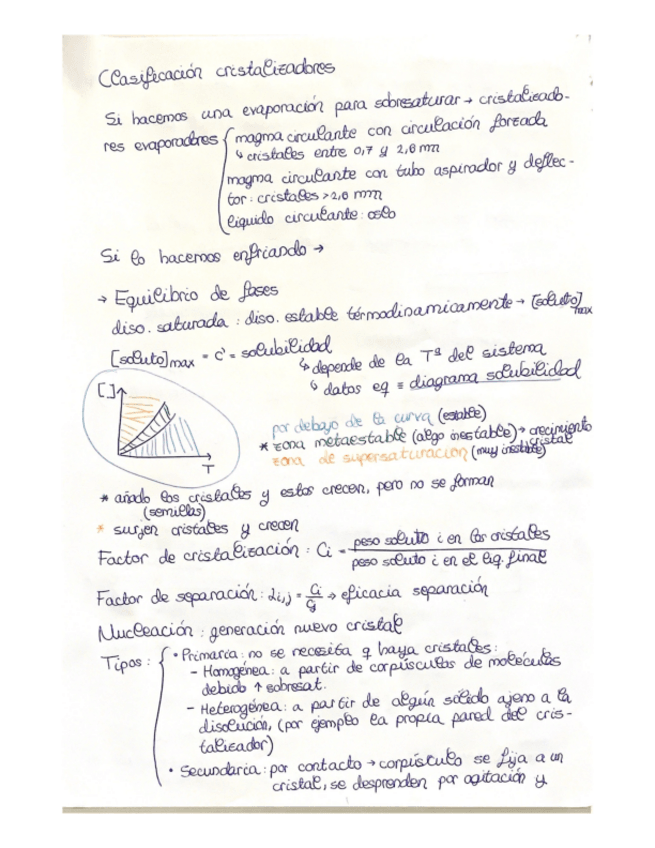 Clasificación cristalizadores
Si hacemos una evaporación para sobresaturar → cristalizado-
res evaporadores { magma circulante con circulación forzada
↳ cristales entre 0,7 y 2,0 mm
magma circulante con tubo aspirador y deflec-
tor: cristales > 2,0 mm
líquido circulante: oslo
Si lo hacemos enfriando →
→ Equilibrio de fases
diso. saturada : diso. estable termodinamicamente → [soluto]max
[soluto]max = c' = solubilidad
↳ depende de la Tª del sistema
↳ datos eq ≡ diagrama solubilidad
[ ]
T
por debajo de la curva (estable)
* zona metaestable (algo inestable) → crecimiento cristal
zona de supersaturacion (muy inestable)
* añado los cristales y estos crecen, pero no se forman
(semillas)
* surjen cristales y crecen
Factor de cristalización : Ci = peso soluto i en los cristales
peso soluto i en el liq. final
Factor de separación : αi,j = Ci/Cj → eficacia separación
Nucleación : generación nuevo cristal
Tipos : { • Primaria: no se necesita q haya cristales:
- Homogénea: a partir de corpúsculos de moléculas
debido ↑ sobresat.
- Heterogénea: a partir de algún sólido ajeno a la
disolución, (por ejemplo la propia pared del cris-
talizador)
• Secundaria: por contacto → corpúsculo se fija a un
cristal, se desprenden por agitación y